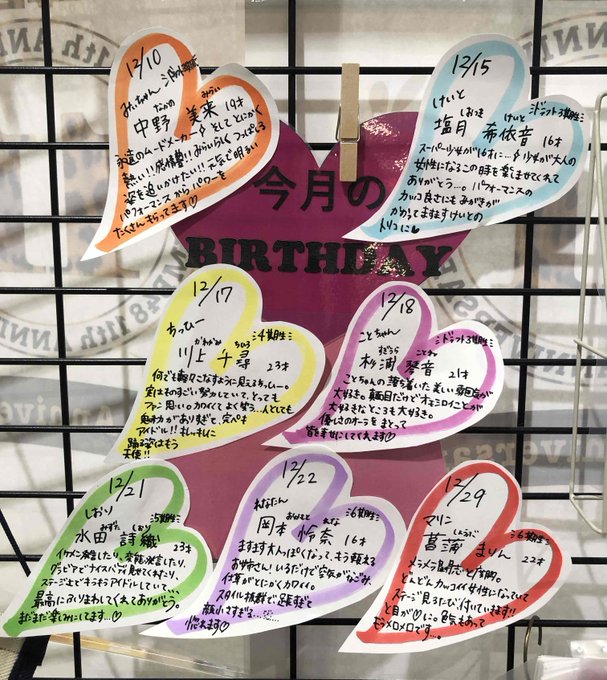 今月の
BIRTHDAY
12/10
みぃちゃん
なかの みらい
中野 美来 19才
永遠のムードメーカー!そしてとにかく
熱い!!感情豊か!!みらいらしく つっぱしる
姿を追いかけたい!!元気で明るい
パフォーマンスからパワーを
たくさんもらってます♡
12/15
けいと
ドラフト3期生
しおつき けいと
塩月 希依音 16才
スーパー少女が16才に…!少女が大人の
女性になるこの時を楽しませてくれて
ありがとう…。パフォーマンスの
カッコ良さにもみがきが
かかってますますけいとの
トリコに♥
12/17
ちっひー
4期生
かわかみ ちひろ
川上 千尋 23才
何でも軽々こなすように見えるちっひー。
実はものすごい努力していて、とっても
ファン思い。カワイくてよく笑う、人としても
魅力がありすぎて、完ペキ
アイドル!!
踊る姿はもう
天使!!
12/18
ことちゃん
ドラフト3期生
すぎうら ことね
杉浦 琴音 21才
ことちゃんの落ち着いた美しい雰囲気が
大好き。真面目だけどオモシロイことが
大好きなところも大好き。
優しさのオーラをまとって
皆を幸せにしてくれます♡
12/21
しおり
5期生
みずた しおり
水田 詩織 23才
イケメン発言したり、変態発言したり、
グラビアでナイスバディ見せてくれたり、
ステージ上でキラキラアイドルしていて…
最高におりまわしてくれてありがとう。
まだまだ楽しみにしてます…♡
12/22
れなたん
6期生
おかもと れな
岡本 怜奈 16才
ますます大人っぽくなって、もう頼れる
お姉さん!いるだけで空気がなごみ、
仕草がとにかくカワイイ。
スタイル抜群で足長すぎて
顔小さすぎる…
惚れます♡
12/29
マリン
6期生
しょうぶ
菖蒲 まりん 22才
メラメラ温朗と度胸。
どんどんカッコイイ女性になっていて
ステージ見るたびに付いていきます!!
と目が♡に。色気もあって
もうメロメロです…。